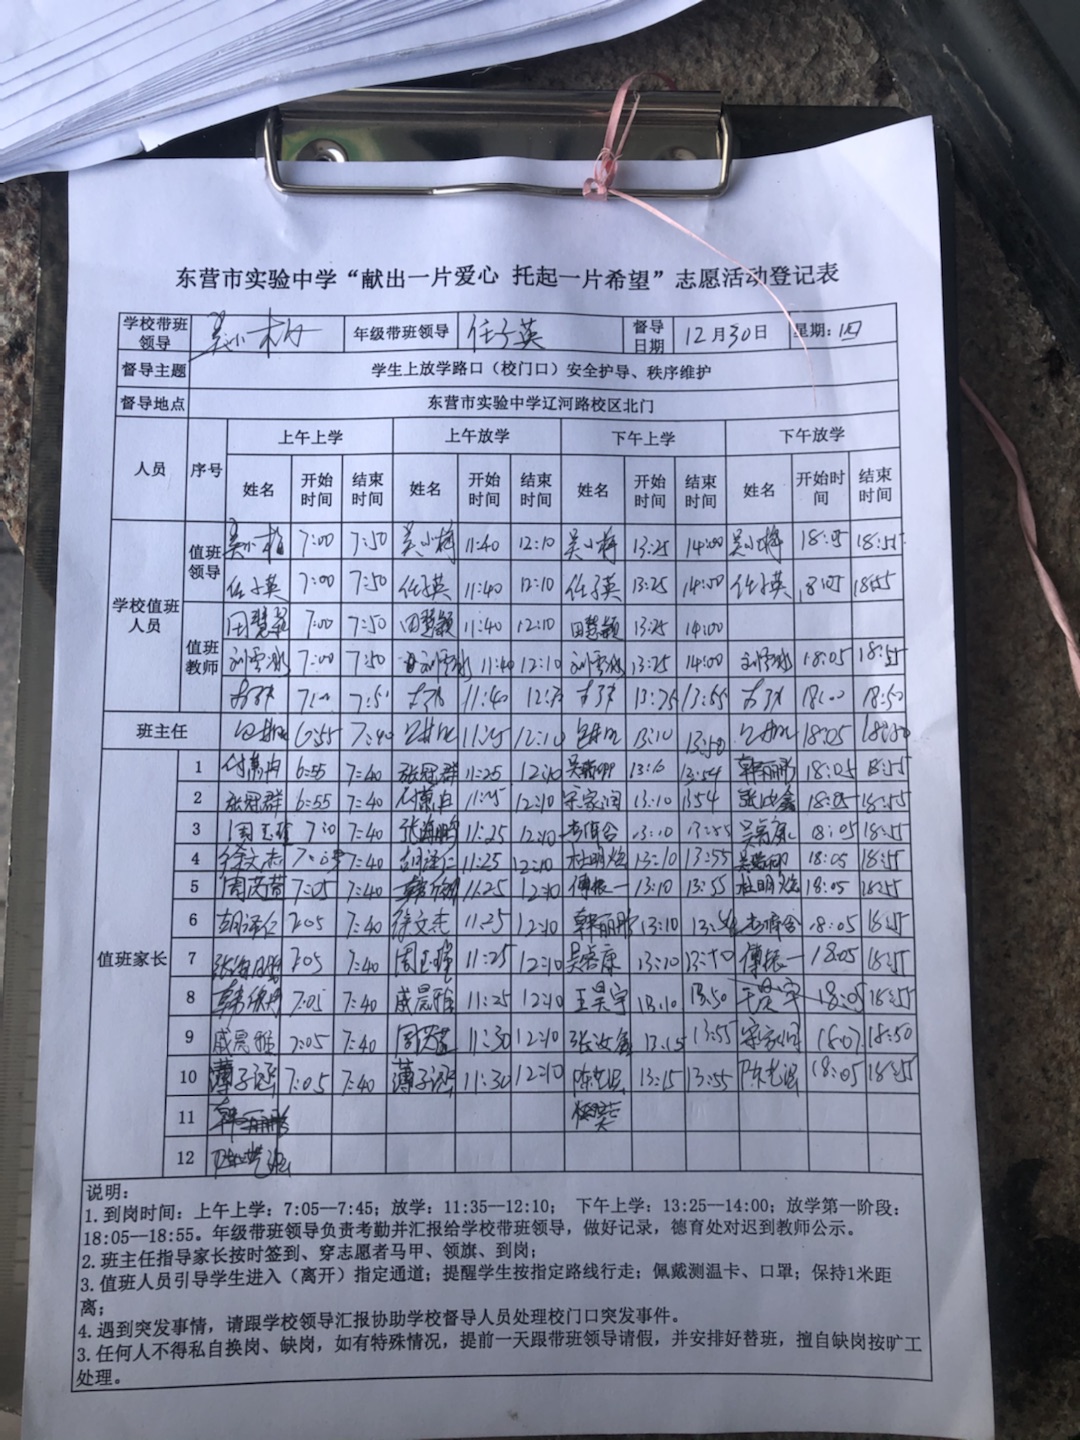 东营市实验中学“献出一片爱心 托起一片希望”志愿活动登记表
学校带班领导 吴小梅 年级带班领导 任子英 督导日期 12月30日 星期：四
督导主题 学生上放学路口（校门口）安全护导、秩序维护
督导地点 东营市实验中学辽河路校区北门
人员 序号 上午上学 上午放学 下午上学 下午放学
姓名 开始时间 结束时间 姓名 开始时间 结束时间 姓名 开始时间 结束时间 姓名 开始时间 结束时间
学校值班人员
值班领导 吴小梅 7:00 7:50 吴小梅 11:40 12:10 吴小梅 13:25 14:00 吴小梅 18:05 18:55
任子英 7:00 7:50 任子英 11:40 12:10 任子英 13:25 14:00 任子英 18:05 18:55
值班教师 田慧颖 7:00 7:50 田慧颖 11:40 12:10 田慧颖 13:25 14:00
刘雪冰 7:00 7:50 刘雪冰 11:40 12:10 刘雪冰 13:25 14:00 刘雪冰 18:05 18:55
7:00 7:50 11:40 18:00 18:50
班主任 6:55 7:40 12:10 13:10 13:50 18:05
值班家长
1 6:55 7:40 张冠群 11:25 12:10 13:54 韩丽彤 18:05 18:55
2 张冠群 6:55 7:40 11:25 12:10 宋家润 13:10 13:54 张汝鑫 18:05 18:55
3 周玉瑾 7:40 张海鹏 11:25 12:10 13:10 13:55 吴嘉康 18:05 18:55
4 徐文杰 7:40 胡泽仁 11:25 12:10 杜明焓 13:10 13:55 18:05 18:55
5 7:05 7:40 11:25 12:10 傅振一 13:10 13:55 杜明焓 18:05 18:55
6 胡泽仁 7:05 7:40 徐文杰 11:25 12:10 韩丽彤 13:10 18:05 18:55
7 张海鹏 7:05 7:40 周玉瑾 11:25 12:10 吴嘉康 13:10 13:50 傅振一 18:05 18:55
8 7:05 7:40 戚晨雅 11:25 12:10 王昊宇 13:10 13:50 王昊宇 18:05 18:55
9 戚晨雅 7:05 7:40 11:30 12:10 张汝鑫 13:15 13:55 宋家润 18:50
10 薄子涵 7:05 7:40 薄子涵 11:30 12:10 13:15 13:55 18:05 18:55
11 韩丽彤
12
说明：
1. 到岗时间：上午上学：7:05—7:45；放学：11:35—12:10； 下午上学：13:25—14:00；放学第一阶段：
18:05—18:55。年级带班领导负责考勤并汇报给学校带班领导，做好记录，德育处对迟到教师公示。
2. 班主任指导家长按时签到、穿志愿者马甲、领旗、到岗；
3. 值班人员引导学生进入（离开）指定通道；提醒学生按指定路线行走；佩戴测温卡、口罩；保持1米距
离；
4. 遇到突发事情，请跟学校领导汇报协助学校督导人员处理校门口突发事件。
3. 任何人不得私自换岗、缺岗，如有特殊情况，提前一天跟带班领导请假，并安排好替班，擅自缺岗按旷工
处理。